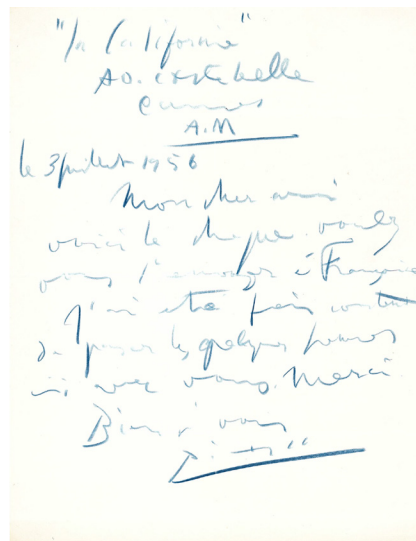 "La Californie"
Av. Costebelle
Cannes
A.M
le 3 juillet 1956
Mon cher ami
voici le cheque. voulez
vous l'envoyer à Françoise
J'ai été content
de passer les quelques jours
ici avec vous. Merci.
Bien à vous
Picasso